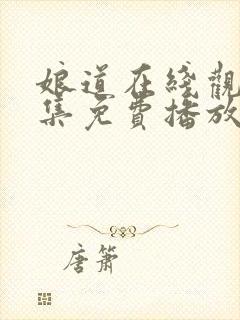 娘道在綫觀
集免費播放
唐箫